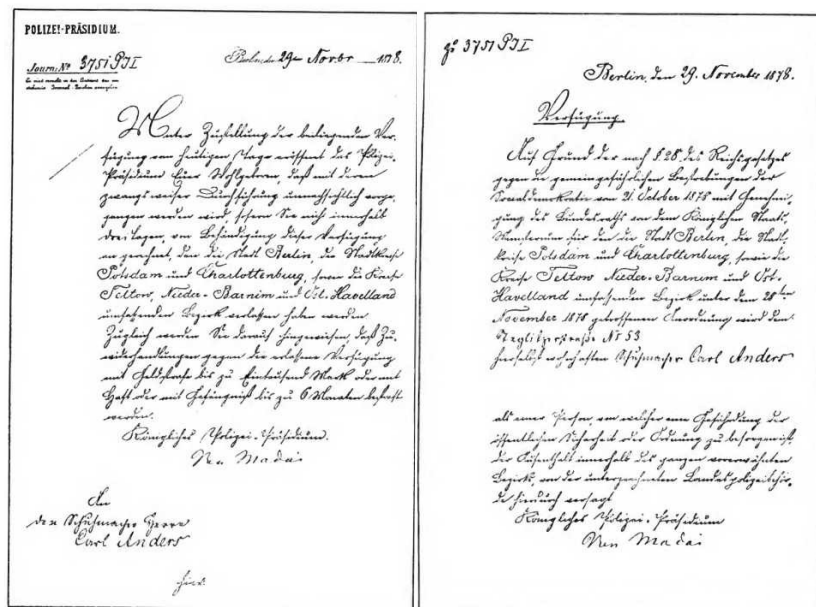 POLIZEI-PRÄSIDIUM.
Journ: № 3751 P.J.I
Berlin, den 29ten Novbr 1878.
Unter Zustellung der beiliegenden Ver-
fügung vom heutigen Tage eröffnet das Polizei-
Präsidium Euer Wohlgeboren, daß mit deren
zwangsweiser Durchführung unnachsichtlich vorge-
gangen werden wird, sofern Sie nicht innerhalb
drei Tagen, von Behändigung dieser Verfügung
an gerechnet, den die Stadt Berlin, die Stadtkreise
Potsdam und Charlottenburg, sowie die Kreise
Teltow, Nieder-Barnim und Ost-Havelland
umfassenden Bezirk verlassen haben werden.
Zugleich werden Sie darauf hingewiesen, daß Zu-
widerhandlungen gegen die erlassene Verfügung
mit Geldstrafe bis zu Eintausend Mark oder mit
Haft oder mit Gefängniß bis zu 6 Monaten bestraft
werden.
Königliches Polizei-Präsidium.
Von Madai
An
den Schuhmacher Herrn
Carl Anders
hier.
zu 3751 P.J.I
Berlin, den 29. November 1878.
Verfügung.
Auf Grund der nach §. 28. des Reichsgesetzes
gegen die gemeingefährlichen Bestrebungen der
Sozialdemokratie vom 21. October 1878 mit Genehmi-
gung des Bundesraths von dem Königlichen Staats-
Ministerium für den die Stadt Berlin, die Stadt-
kreise Potsdam und Charlottenburg, sowie die
Kreise Teltow, Nieder-Barnim und Ost-
Havelland umfassenden Bezirk unter dem 28ten
November 1878 getroffenen Anordnung wird dem
Steglitzerstraße № 53
hierselbst wohnhaften Schuhmacher Carl Anders
als einer Person, von welcher eine Gefährdung der
öffentlichen Sicherheit oder Ordnung zu besorgen ist,
der Aufenthalt innerhalb des ganzen vorerwähnten
Bezirks, von der unterzeichneten Landespolizeibehör-
de hierdurch versagt.
Königliches Polizei-Präsidium
Von Madai